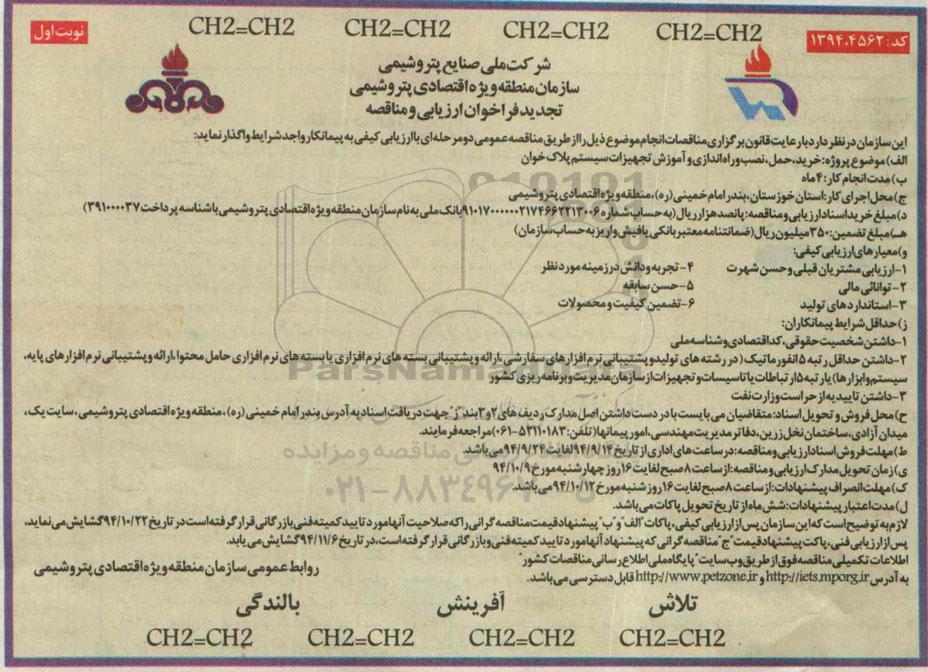 CH2=CH2 CH2=CH2 CH2=CH2 CH2=CH2
کد: ۱۳۹۴،۴۵۶۲
نوبت اول
شرکت ملی صنایع پتروشیمی
سازمان منطقه ویژه اقتصادی پتروشیمی
تجدید فراخوان ارزیابی و مناقصه
این سازمان در نظر دارد با رعایت قانون برگزاری مناقصات انجام موضوع ذیل را از طریق مناقصه عمومی دو مرحله ای با ارزیابی کیفی به پیمانکار واجد شرایط واگذار نماید:
الف) موضوع پروژه: خرید، حمل، نصب و راه اندازی و آموزش تجهیزات سیستم پلاک خوان
ب) مدت انجام کار: ۴ ماه
ج) محل اجرای کار: استان خوزستان، بندر امام خمینی (ره)، منطقه ویژه اقتصادی پتروشیمی
د) مبلغ خرید اسناد ارزیابی و مناقصه: پانصد هزار ریال (به حساب شماره ۲۱۷۴۶۶۲۲۱۳۰۰۶ ۹۱۰۱۷۰۰۰۰۰۰ بانک ملی به نام سازمان منطقه ویژه اقتصادی پتروشیمی با شناسه پرداخت ۳۹۱۰۰۰۰۳۷)
هـ) مبلغ تضمین: ۳۵۰ میلیون ریال (ضمانتنامه معتبر بانکی یا فیش واریز به حساب سازمان)
و) معیارهای ارزیابی کیفی:
۱- ارزیابی مشتریان قبلی و حسن شهرت ۴- تجربه و دانش در زمینه مورد نظر
۲- توانائی مالی ۵- حسن سابقه
۳- استانداردهای تولید ۶- تضمین کیفیت و محصولات
ز) حداقل شرایط پیمانکاران:
۱- داشتن شخصیت حقوقی، کد اقتصادی و شناسه ملی
۲- داشتن حداقل رتبه ۵ انفورماتیک (در رشته های تولید و پشتیبانی نرم افزارهای سفارشی، ارائه و پشتیبانی بسته های نرم افزاری یا بسته های نرم افزاری حامل محتوا، ارائه و پشتیبانی نرم افزارهای پایه،
سیستم و ابزارها) یا رتبه ۵ ارتباطات یا تاسیسات و تجهیزات از سازمان مدیریت و برنامه ریزی کشور
۳- داشتن تاییدیه از حراست وزارت نفت
ح) محل فروش و تحویل اسناد: متقاضیان می بایست با در دست داشتن اصل مدارک ردیف های ۲ و ۳ بند "ز" جهت دریافت اسناد به آدرس بندر امام خمینی (ره)، منطقه ویژه اقتصادی پتروشیمی، سایت یک،
میدان آزادی، ساختمان نخل زرین، دفاتر مدیریت مهندسی، امور پیمانها (تلفن: ۵۲۱۱۰۱۸۳-۰۶۱) مراجعه فرمایند.
ط) مهلت فروش اسناد ارزیابی و مناقصه: در ساعت های اداری از تاریخ ۹۴/۹/۱۴ لغایت ۹۴/۹/۲۴ می باشد.
ی) زمان تحویل مدارک ارزیابی و مناقصه: از ساعت ۸ صبح لغایت ۱۶ روز چهارشنبه مورخ ۹۴/۱۰/۹
ک) مهلت انصراف پیشنهادات: از ساعت ۸ صبح لغایت ۱۶ روز شنبه مورخ ۹۴/۱۰/۱۲ می باشد.
ل) مدت اعتبار پیشنهادات: شش ماه از تاریخ تحویل پاکات می باشد.
لازم به توضیح است که این سازمان پس از ارزیابی کیفی، پاکات "الف" و "ب" پیشنهاد قیمت مناقصه گرانی را که صلاحیت آنها مورد تایید کمیته فنی بازرگانی قرار گرفته است در تاریخ ۹۴/۱۰/۲۲ گشایش می نماید،
پس از ارزیابی فنی، پاکت پیشنهاد قیمت "ج" مناقصه گرانی که پیشنهاد آنها مورد تایید کمیته فنی و بازرگانی قرار گرفته است، در تاریخ ۹۴/۱۱/۶ گشایش می یابد.
اطلاعات تکمیلی مناقصه فوق از طریق وب سایت "پایگاه ملی اطلاع رسانی مناقصات کشور"
به آدرس http://iets.mporg.ir و http://www.petzone.ir قابل دسترسی می باشد.
روابط عمومی سازمان منطقه ویژه اقتصادی پتروشیمی
تلاش آفرینش بالندگی
CH2=CH2 CH2=CH2 CH2=CH2 CH2=CH2
ParsNamadData
۰۲۱-۸۸۳۴۹۶۷۰